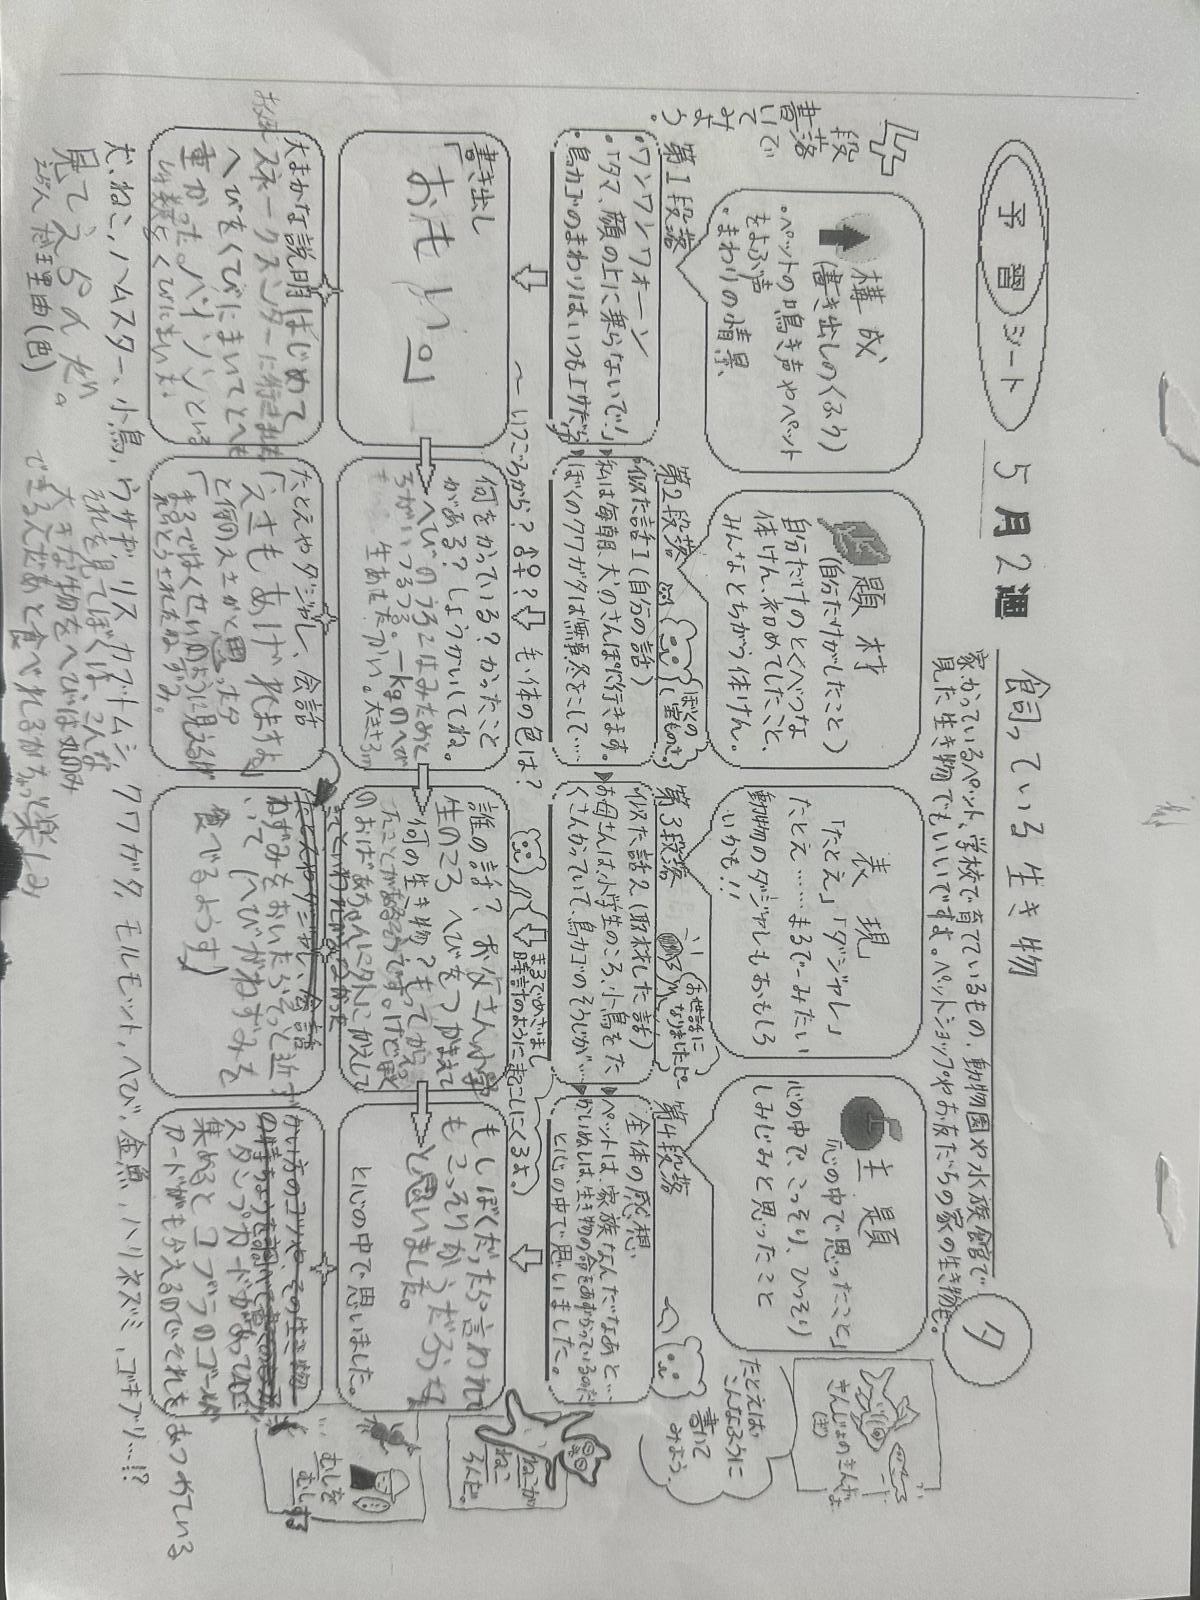 予習シート
5月2週
飼っている生き物
夕
家かっているペット、学校で育てているもの、動物園や水族館で
見た生き物でもいいですよ。ペットショップやお友だちの家の生き物も。
4段落で書いてみよう。
構成
(書き出しのくふう)
・ペットの鳴き声やペット
をよぶ声
・まわりの情景
題材
(自分だけがしたこと)
自分だけのとくべつな
体けん、初めてしたこと、
みんなとちがう体けん。
表現
「たとえ」「ダジャレ」
たとえ……まるで〜みたい
動物のダジャレもおもしろ
いかも!!
主題
「心の中で思ったこと」
心の中で、こっそり、ひっそり
しみじみと思ったこと
たとえば
こんなふうに
書いて
みよう。
第1段落
・ワンワンワォーン
・「タマ、顔の上に乗らないで!」
・鳥カゴのまわりはいつも
第2段落
ぼくの
宝ものさ。
似た話1(自分の話)
私は毎朝犬のさんぽに行きます。
ぼくのクワガタは無事冬をこして…
第3段落
お世話に
なりましたピ
似た話2(取材した話)
お母さんは小学生のころ、小鳥をた
くさんかっていて、鳥カゴのそうじが…
第4段落
全体の感想
ペットは、家族なんだなあと…
かいぬしは、生き物の命をあずかっているのだ
と心の中で思いました。
〜いつごろから?♂♀?
も、体の色は?
まるでめざまし
時計のように起こしにくるよ。
書き出し
「おもい」
何をかっている?かったこと
がある?しょうかいしてね。
へびのうろこはみためと
ちがいつるつる。一kgのへび
生あたたかい。大きさ
誰の話?お父さん小学
生のころへびをつかまえて
何の生き物?もってかえっ
のおばあちゃんに外にかえして
もしぼくだったら言われて
もこっそりかうだろうな
と思いました。
と心の中で思いました。
大まかな説明はじめて
スネークセンターに行きました
へびをくびにまいてとても
重かった。パイソンという
しゅ類をくびにまいた
たとえやダジャレ、会話
「えさもあげれますよ」
と何のえさかと思ったら
「まるではくせいのように見える
れいとうされたねずみ。
たとえやダジャレ、会話
ねずみをおいたらそっと近づ
いて(へびがねずみを
食べるようす)
かい方のコツや、その生き物
スタンプカードがあってぜんぶ
集めるとコブラのゴールド
カードがもらえるのでそれもあつめている
犬、ねこ、ハムスター、小鳥、ウサギ、リス、カブトムシ、クワガタ、モルモット、へび、金魚、ハリネズミ、ゴキブリ…!?
見てえらんだ。
えらんだ理由(色)
それを見てぼくは、こんな
大きな物をへびは
できるんだなあと
ねこが
ねこ
ろんだ。
むしを
むしする